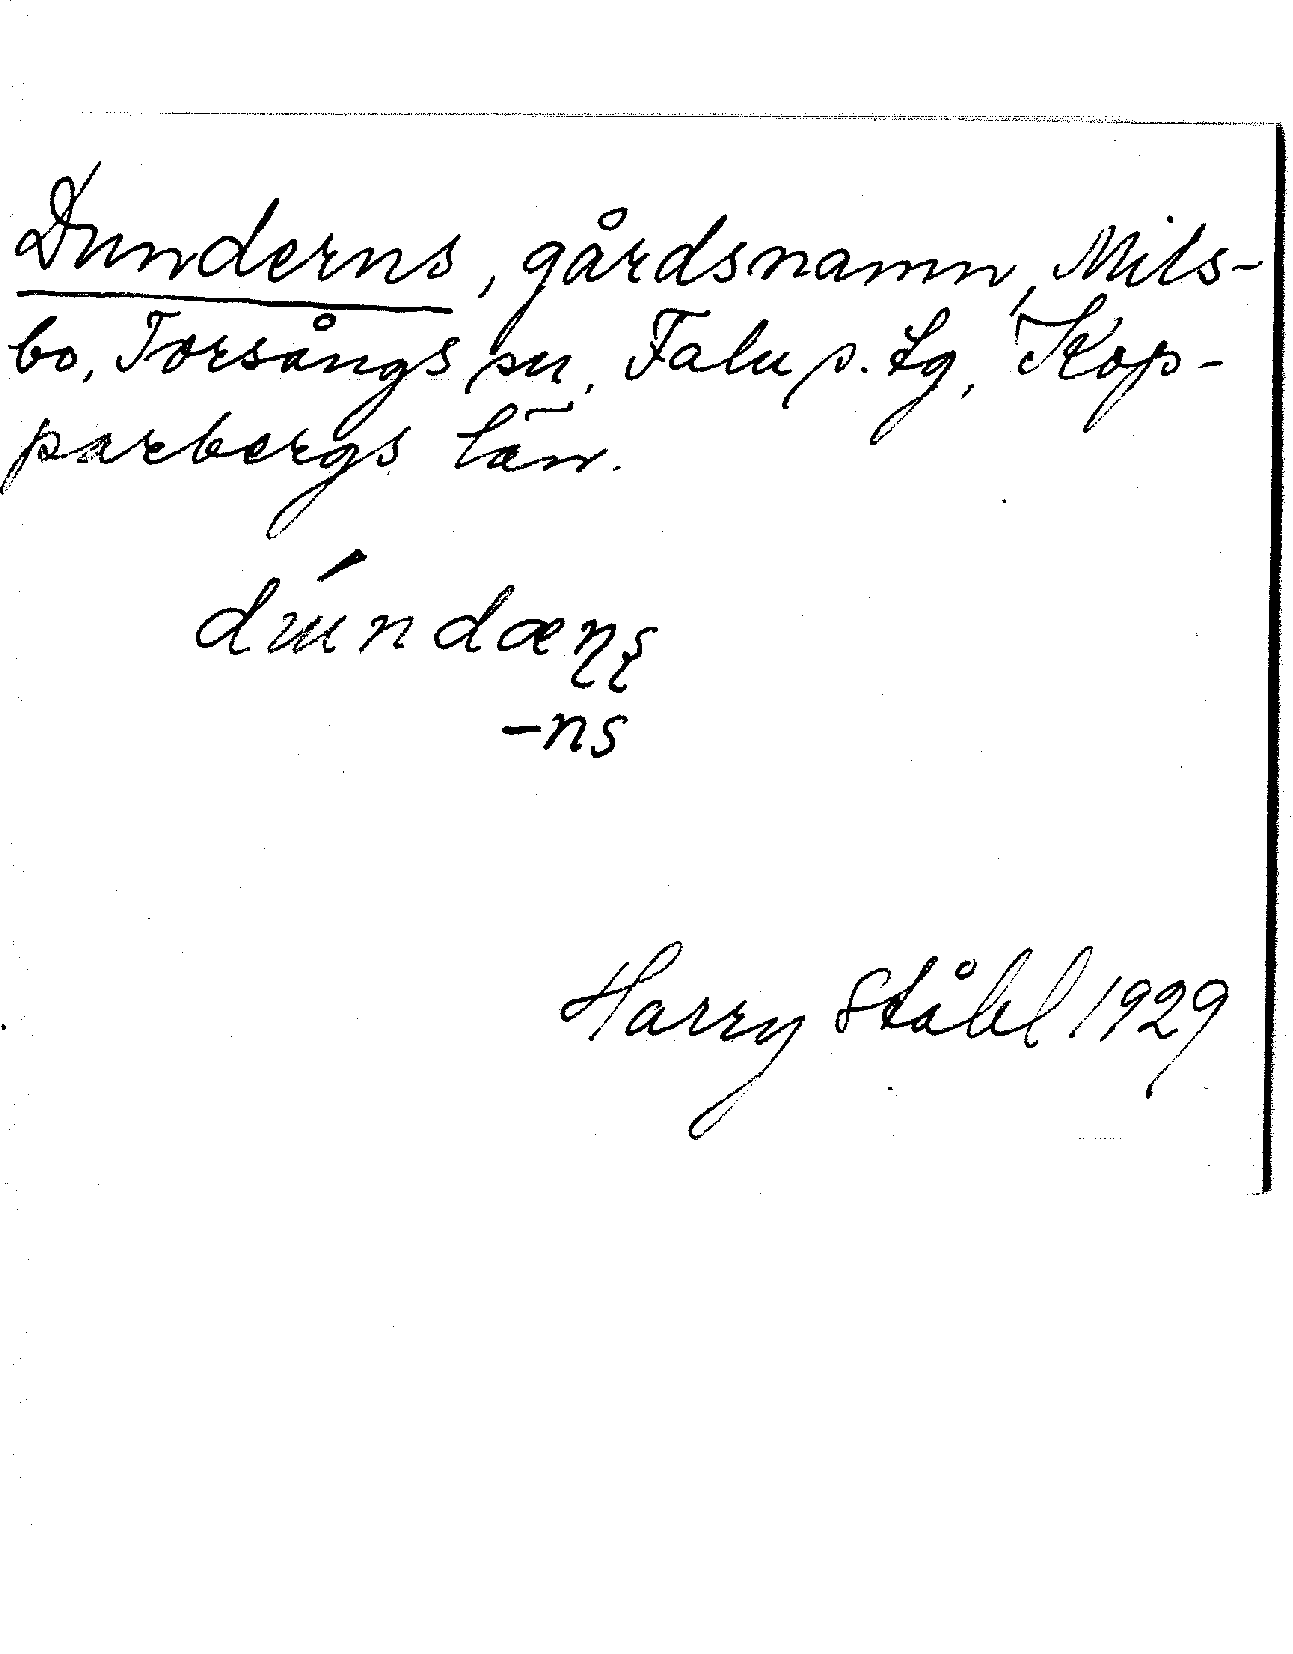 Dunderns, gårdsnamn, Mils-
bo, Torsångs sn, Falu s. tg, Kop-
parbergs län.
dɯ́ndæɳʂ
-ns
Harry Ståhl 1929